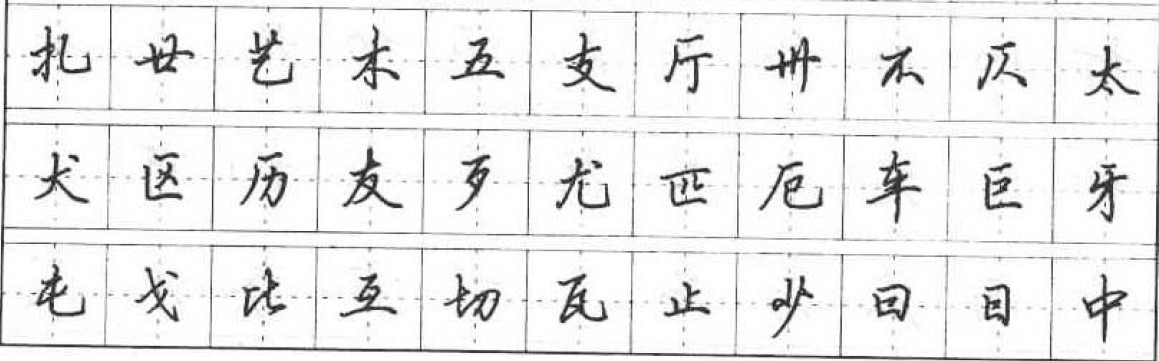 扎廿艺木五支厅卅不仄太
犬区历友歹尤匹厄车巨牙
屯戈比互切瓦止少曰日中